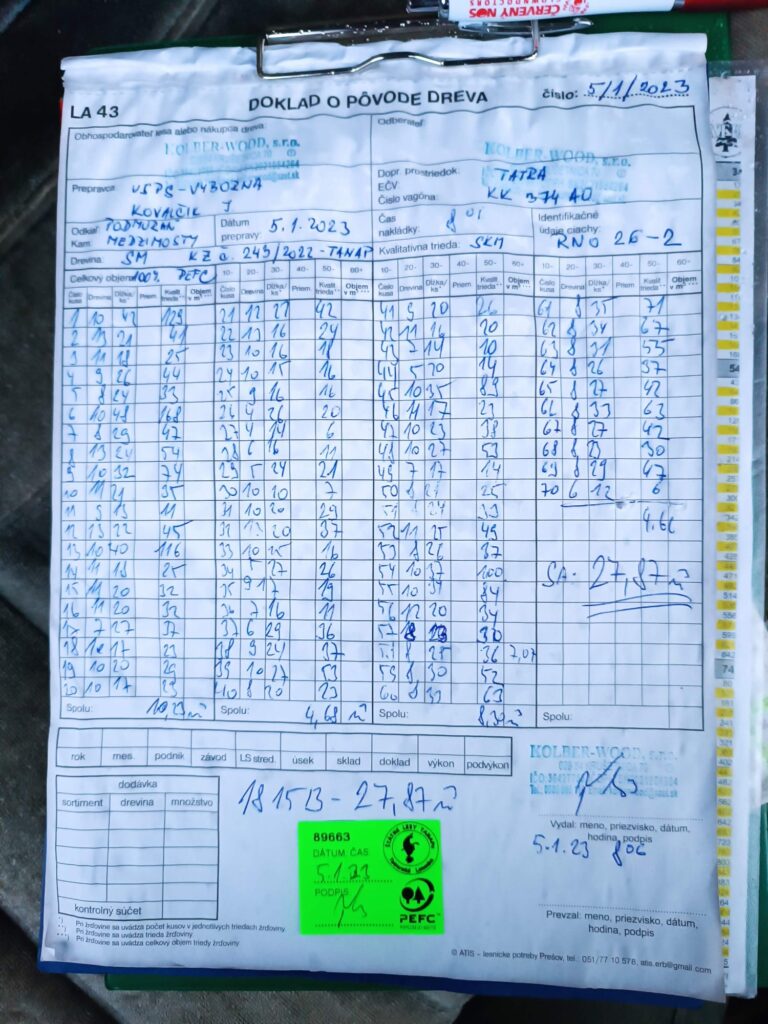 ČERVENÝ NOS
CLOWNDOCTORS
LA 43
DOKLAD O PÔVODE DREVA
číslo: 5/1/2023
Obhospodarovateľ lesa alebo nákupca dreva:
KOLBER-WOOD, s.r.o.
Odberateľ:
KOLBER-WOOD, s.r.o.
Prepravca
KOVALČIK J
Dopr. prostriedok: TATRA
EČV
Číslo vagóna: KK 374 AO
Odkiaľ
Kam MEDZIMOSTY
Dátum prepravy: 5.1.2023
Čas nakládky: 8 01
Identifikačné údaje ciachy: RNO 26-2
Drevina: SM KZ č. 249/2022-TANAP
Kvalitatívna trieda: SKM
Celkový objem 100% PEFC
Číslo kusa Drevina Dĺžka/ks Priem. Kvalit. trieda Objem v m³
1 10 42 129
2 13 21 41
3 11 18 25
4 9 26 44
5 8 24 33
6 10 48 168
7 8 29 47
8 13 24 54
9 10 32 74
10 11 21 35
11 9 13 11
12 13 22 45
13 10 40 116
14 11 18 25
15 11 20 32
16 11 20 32
17 7 27 37
18 10 17 23
19 10 20 29
20 10 17 23
Spolu: 10,23 m³
10- 20- 30- 40- 50- 60+
21 12 21 42
22 13 16 24
23 10 16 18
24 10 15 16
25 9 16 16
26 4 26 20
27 4 14 6
28 6 16 11
29 5 24 21
30 10 10 7
31 10 20 29
32 13 20 37
33 10 15 16
34 5 27 26
35 9 17 19
36 7 16 11
37 6 29 36
38 9 24 37
39 10 27 53
40 8 20 23
Spolu: 4,68 m³
10- 20- 30- 40- 50- 60+
41 9 20 26
42 11 16 20
43 7 14 10
44 5 20 14
45 10 35 89
46 11 17 23
47 10 23 38
48 10 27 53
49 7 17 14
50 8 21 25
51 8 24 33
52 11 25 49
53 8 26 37
54 10 37 100
55 10 34 84
56 12 20 34
57 8 23 30
58 8 25 36 7,07
59 8 30 52
60 8 33 63
Spolu: 8,30 m³
10- 20- 30- 40- 50- 60+
61 8 35 71
62 8 34 67
63 8 31 55
64 8 26 37
65 8 27 42
66 8 33 63
67 8 27 42
68 8 23 30
69 8 29 47
70 6 12 6
4,66
SA: 27,87 m³
Spolu:
rok mes. podnik závod LS stred. úsek sklad doklad výkon podvýkon
dodávka
sortiment drevina množstvo
kontrolný súčet
181513 - 27,87 m³
KOLBER-WOOD, s.r.o.
Vydal: meno, priezvisko, dátum,
hodina, podpis
5.1.23 8 06
89663
DÁTUM: ČAS
5.1.23
PODPIS
ŠTÁTNE LESY TANAPU
PEFC
Prevzal: meno, priezvisko, dátum,
hodina, podpis
Pri žrďovine sa uvádza počet kusov v jednotlivých triedach žrďoviny
Pri žrďovine sa uvádza trieda žrďoviny
Pri žrďovine sa uvádza celkový objem triedy žrďoviny
© ATIS - lesnícke potreby Prešov, tel.: 051/77 10 578, atis.erb@gmail.com